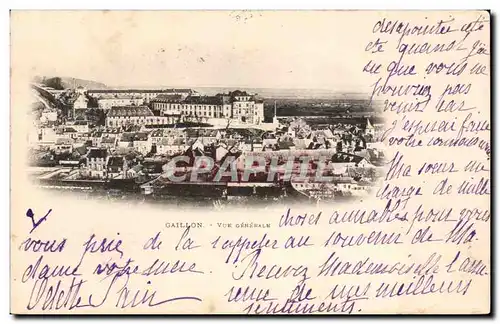 désapointée été
été quand j'ai
su que vous ne
pouviez pas
venir car
J'espérais faire
votre connaissance
Ma sœur me
charge de mille
choses aimables pour vous
CPARAMA
GAILLON. - VUE GÉNÉRALE
vous prie de la rappeler au souvenir de Ma
dame votre sœur.
Recevez Mademoiselle l'assu
rance de mes meilleurs
sentiments.
Odette